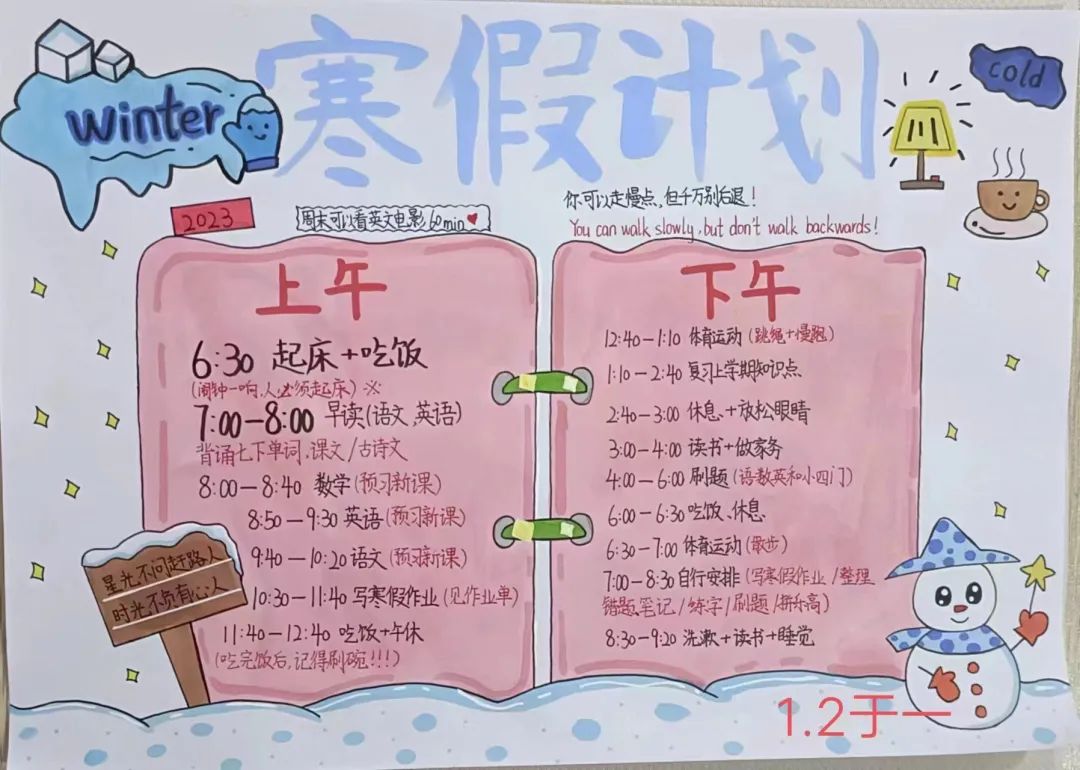 寒假计划
winter
cold
2023
周末可以看英文电影60min
你可以走慢点,但千万别后退!
You can walk slowly, but don't walk backwards!
上午
6:30 起床+吃饭
(闹钟一响,人必须起床)※
7:00—8:00 早读(语文,英语)
背诵七下单词,课文/古诗文
8:00—8:40 数学(预习新课)
8:50—9:30 英语(预习新课)
9:40—10:20 语文(预习新课)
10:30—11:40 写寒假作业(见作业单)
11:40—12:40 吃饭+午休
(吃完饭后,记得刷碗!!!)
下午
12:40—1:10 体育运动(跳绳+慢跑)
1:10—2:40 复习上学期知识点
2:40—3:00 休息+放松眼睛
3:00—4:00 读书+做家务
4:00—6:00 刷题(语数英和小四门)
6:00—6:30 吃饭、休息
6:30—7:00 体育运动(散步)
7:00—8:30 自行安排(写寒假作业/整理
错题,笔记/练字/刷题/拼乐高)
8:30—9:20 洗漱+读书+睡觉
星光不问赶路人
时光不负有心人
1.2于一